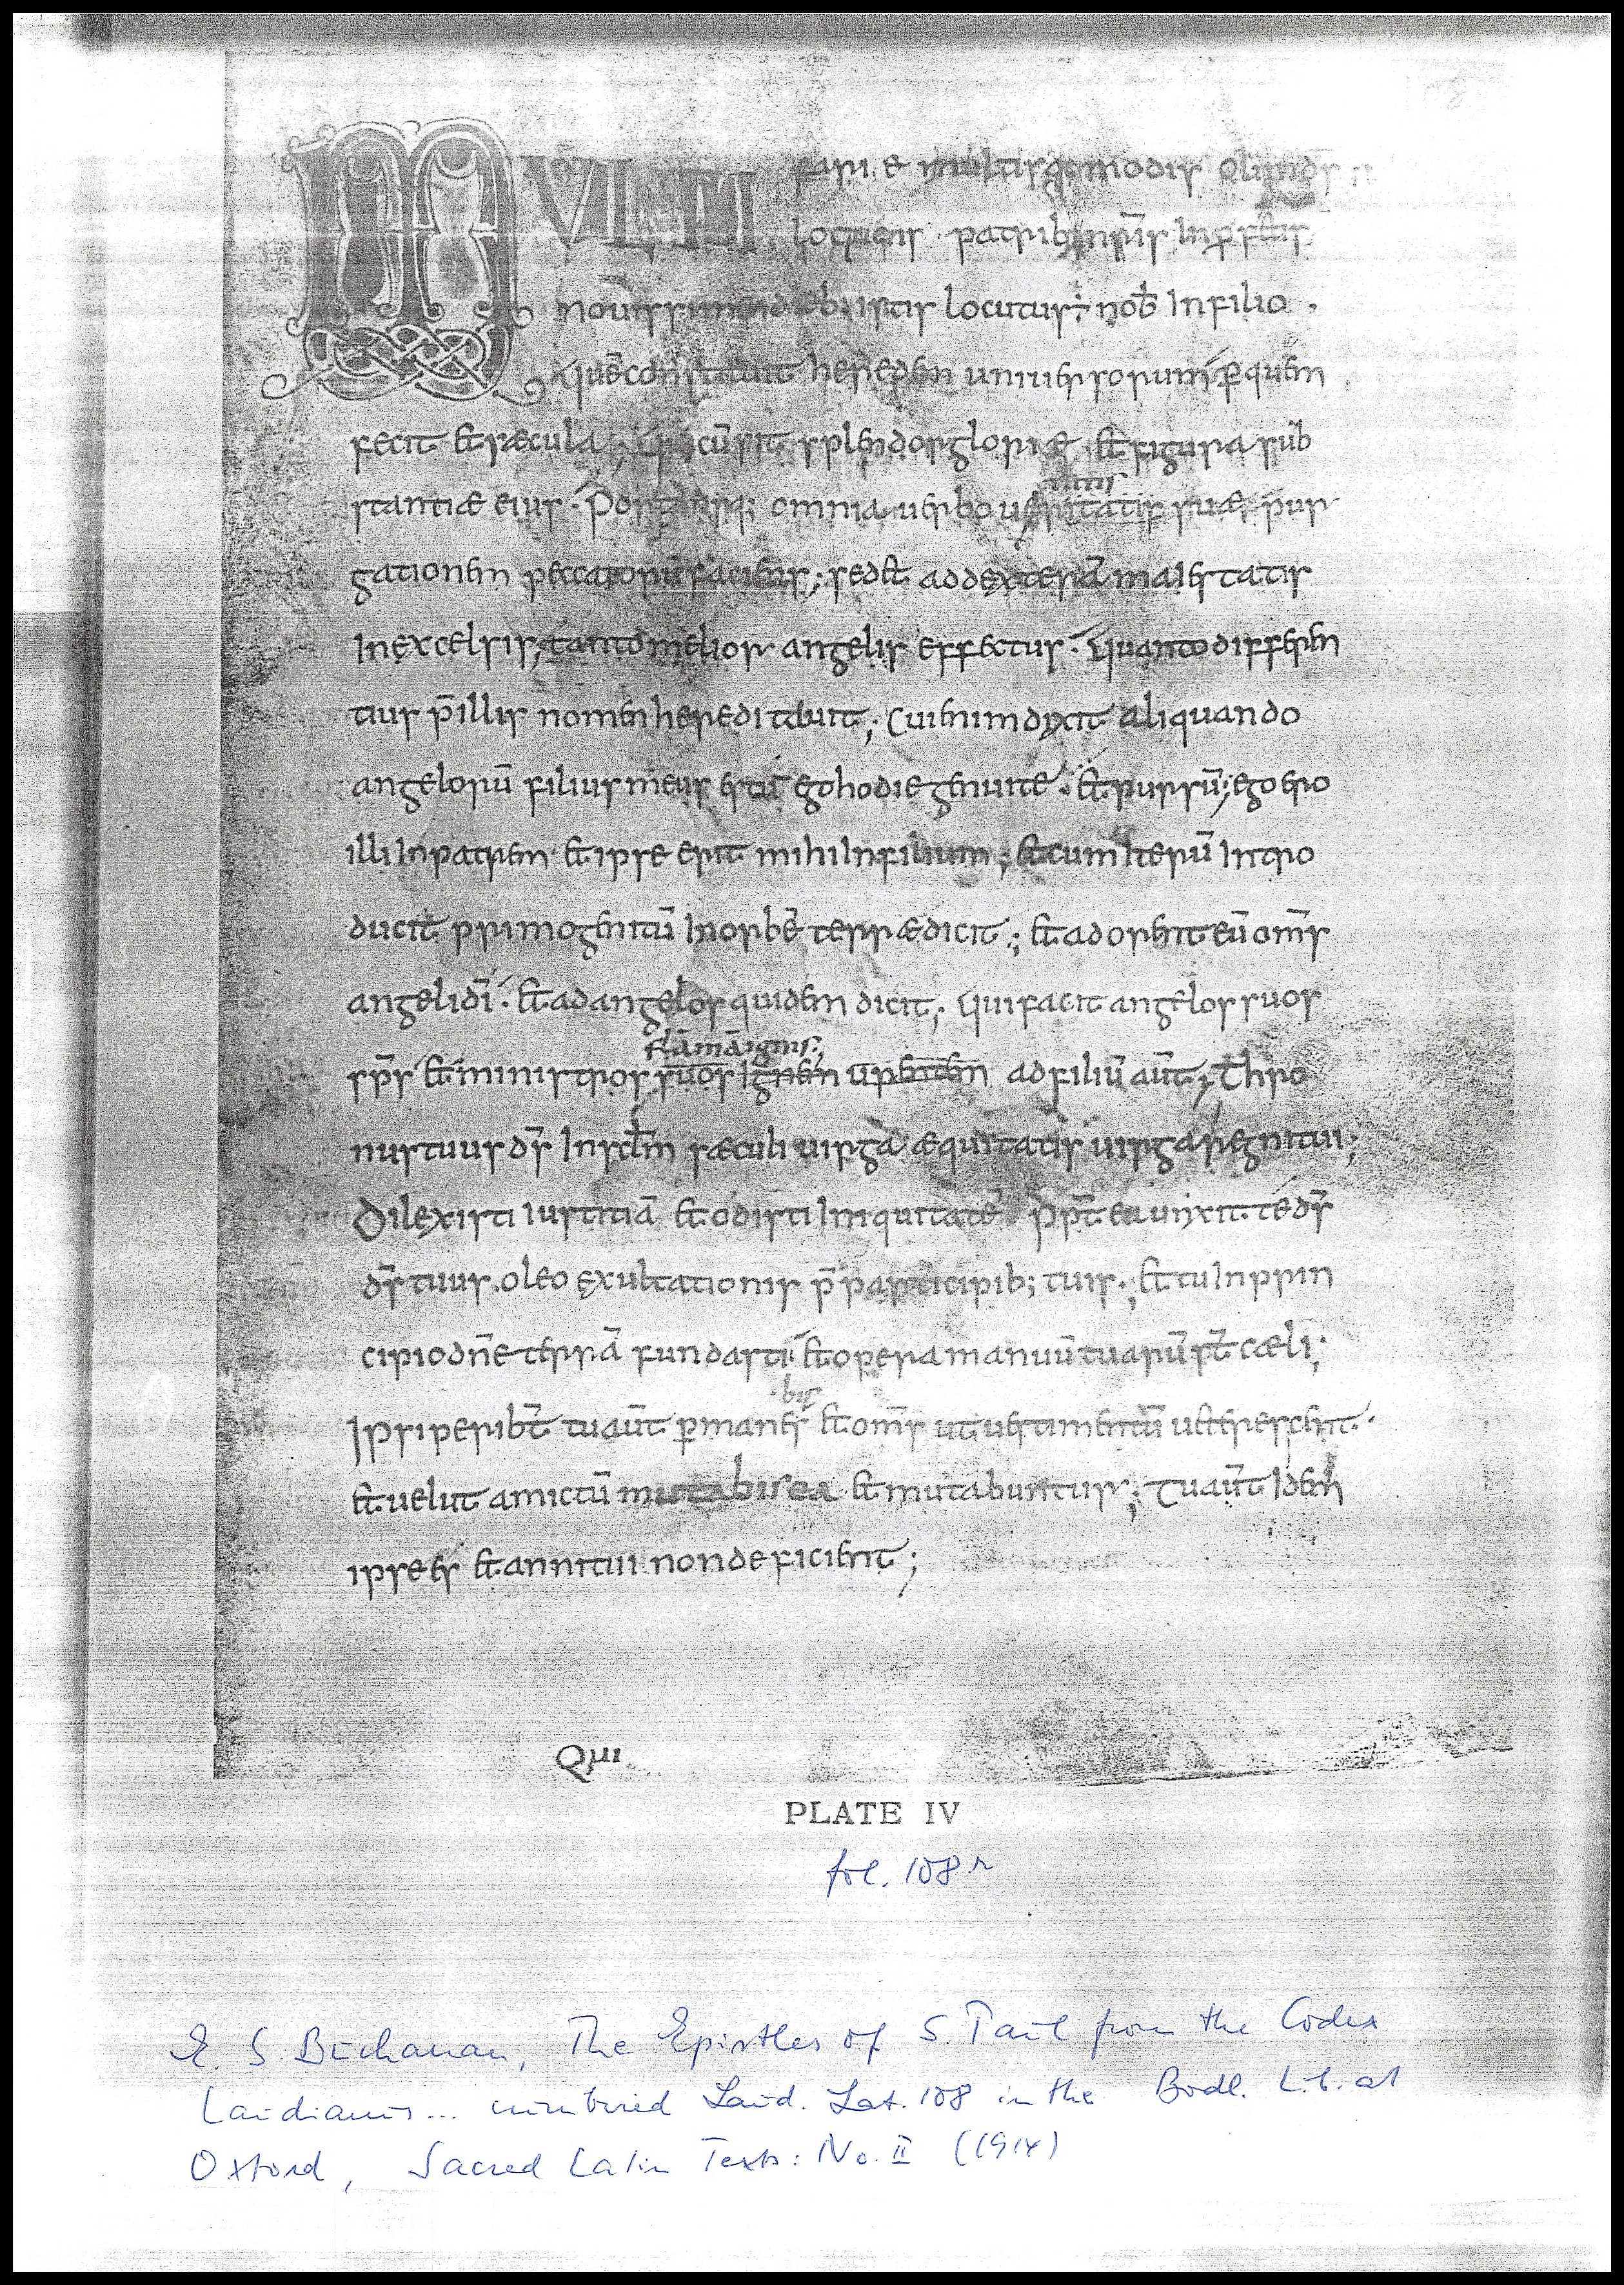 MULTI fari & multisq; modis olim ds̄
loquens patrib; nr̄is In ꝓfetis
nouissime dieb; istis locutus ÷ nob̄ In filio .
Quē constituit heredem uniuersorum ꝑ quem
fecit & sæcula ; Qui cū sit splendor gloriæ & figura sub
nimis
stantiæ eius · Portansq; omnia uerbo ueritatis suæ pur
gationem peccatorū faciens ; sed& ad dexterā maiestatis
In excelsis ; tanto melior angelis effectus · Quanto differen
tius p̄ illis nomen hereditauit ; Cui enim dixit aliquando
angelorū filius meus es tu ego hodie genui te · & rursū ; ego ero
illi In patrem & ipse erit mihi In filium ; & cum Iterū Intro
ducit primogenitū In orbē terræ dicit ; & adorent eū om̄s
angeli dī · & ad angelos quidem dicit ; Qui facit angelos suos
flāmā ignis ;
sp̄s & ministros suos Ignem urentem ad filiū aūt ; Thro
nus tuus ds̄ In sc̄lm sæculi uirga æquitatis uirga regni tui ;
Dilexisti iustitiā & odisti Iniquitatē ꝓpt̄ ea unxit te ds̄
ds̄ tuus . oleo exultationis p̄ participib; tuis ; & tu In prin
cipio dn̄e terrā fundasti & opera manuū tuarū st̄ cæli ;
bis
Ipsi peribt̄ tu aūt ꝑmanes & om̄s ut uestimentū ueterescent ·
& uelut amictū mutabis ea & mutabuntur ; Tu aūt Idem
ipse es & anni tui non deficient ;
Qui
PLATE IV
fol. 108r
E. S. Buchanan, The Epistles of S. Paul from the Codex
Laudianus ... numbered Laud. Lat. 108 in the Bodl. Lib. at
Oxford, Sacred Latin Texts: No. II (1914)